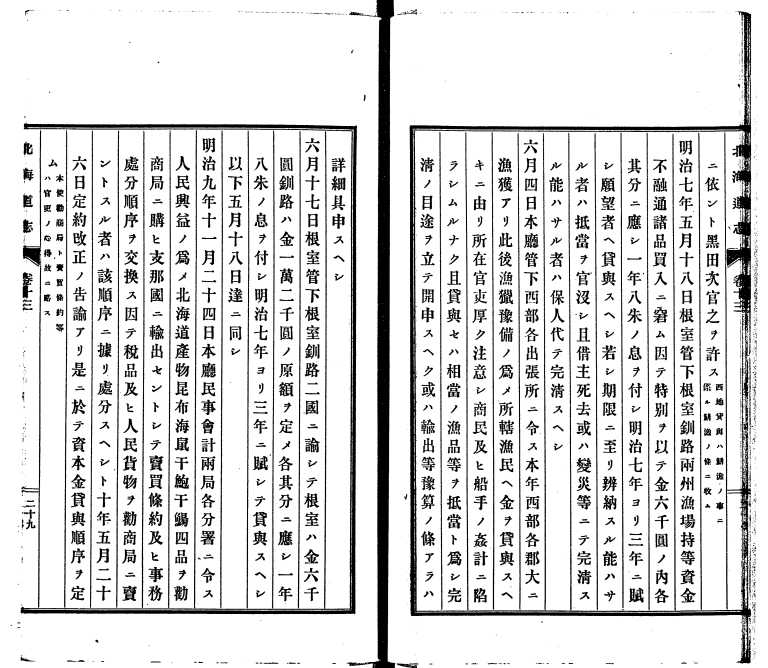 北海道志 卷十三
ニ依ント黑田次官之ヲ許ス 西地貸與ハ鯡漁ノ事ニ
鯡漁ノ條ニ收ム
明治七年五月十八日根室管下根室釧路兩州漁場持等資金
不融通諸品買入ニ窘ム因テ特別ヲ以テ金六千圓ノ內各
其分ニ應シ一年八朱ノ息ヲ付シ明治七年ヨリ三年ニ賦
シ願望者ヘ貸與スヘシ若シ期限ニ至リ辨納スル能ハサ
ル者ハ抵當ヲ官沒シ且借主死去或ハ變災等ニテ完清ス
ル能ハサル者ハ保人代テ完清スヘシ
六月四日本廳管下西部各出張所ニ令ス本年西部各郡大ニ
漁獲アリ此後漁獵豫備ノ爲メ所轄漁民ヘ金ヲ貸與スヘ
キニ由リ所在官吏厚ク注意シ商民及ヒ船手ノ姦計ニ陷
ラシムルナク且貸與セハ相當ノ漁品等ヲ抵當ト爲シ完
淸ノ目途ヲ立テ開申スヘク或ハ輸出等豫算ノ條アラハ
詳細具申スヘシ
六月十七日根室管下根室釧路二國ニ諭シテ根室ハ金六千
圓釧路ハ金一萬二千圓ノ原額ヲ定メ各其分ニ應シ一年
八朱ノ息ヲ付シ明治七年ヨリ三年ニ賦シテ貸與スヘシ
以下五月十八日達ニ同シ
明治九年十一月二十四日本廳民事會計兩局各分署ニ令ス
人民興益ノ爲メ北海道產物昆布海鼠干鮑干鯣四品ヲ勸
商局ニ購ヒ支那國ニ輸出セントシテ賣買條約及ヒ事務
處分順序ヲ交換ス因テ稅品及ヒ人民貨物ヲ勸商局ニ賣
ントスル者ハ該順序ニ據リ處分スヘシト十年五月二十
六日定約改正ノ告諭アリ是ニ於テ資本金貸與順序ヲ定
ム 本使勸商局ト賣買條約等
ハ官吏ノ心得故ニ略ス
北海道志 卷十三 二十九